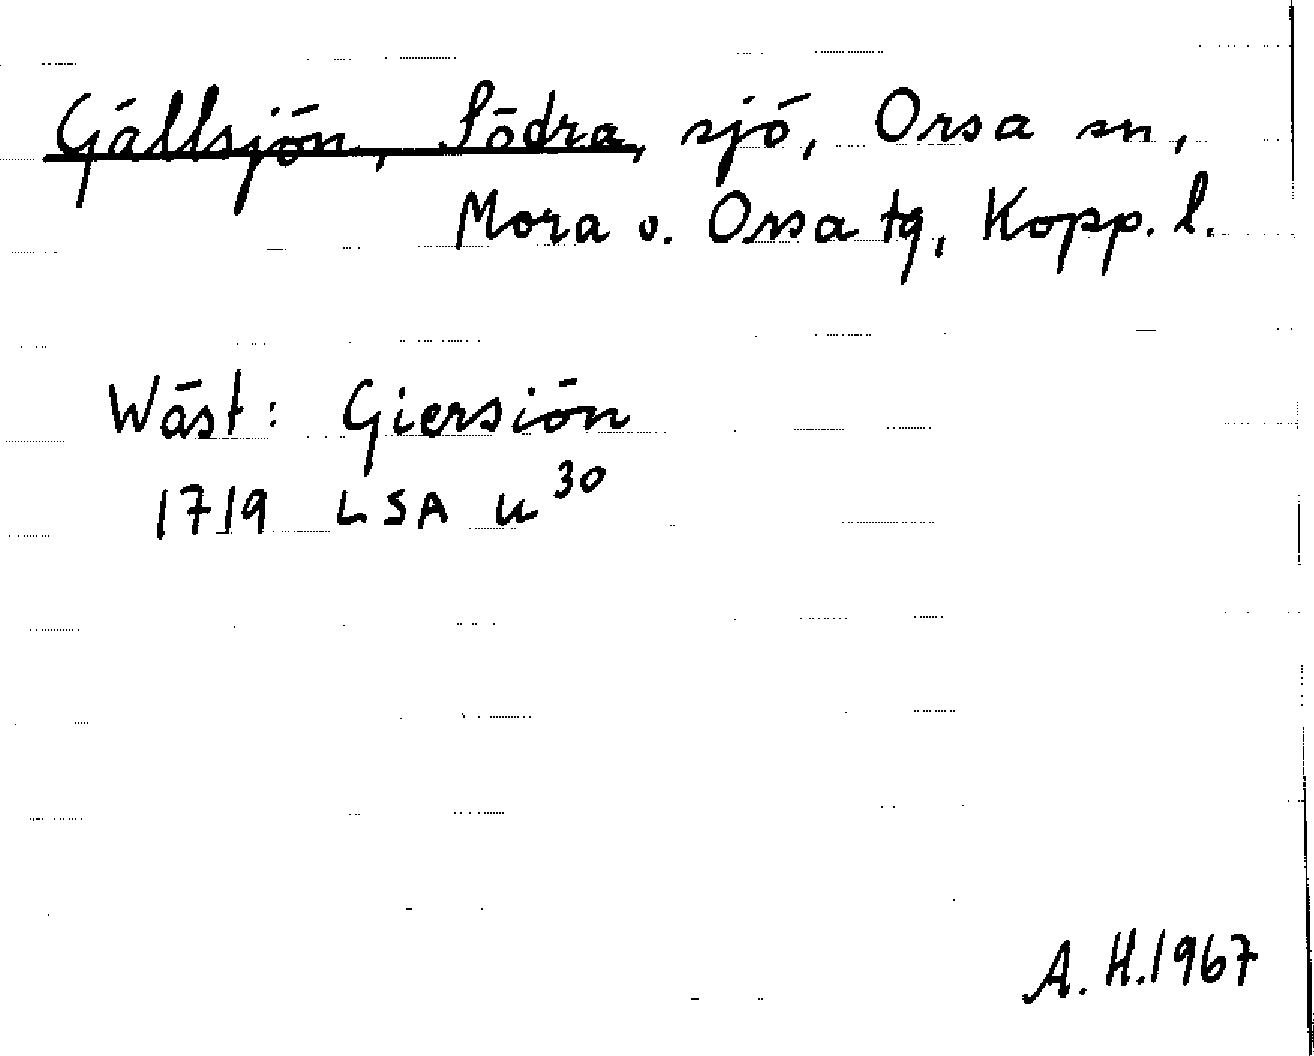 Gällsjön, Södra, sjö, Orsa sn,
Mora o. Orsa tg, Kopp. l.
Wäst: Giersiön
1719 LSA U 30
A. H. 1967